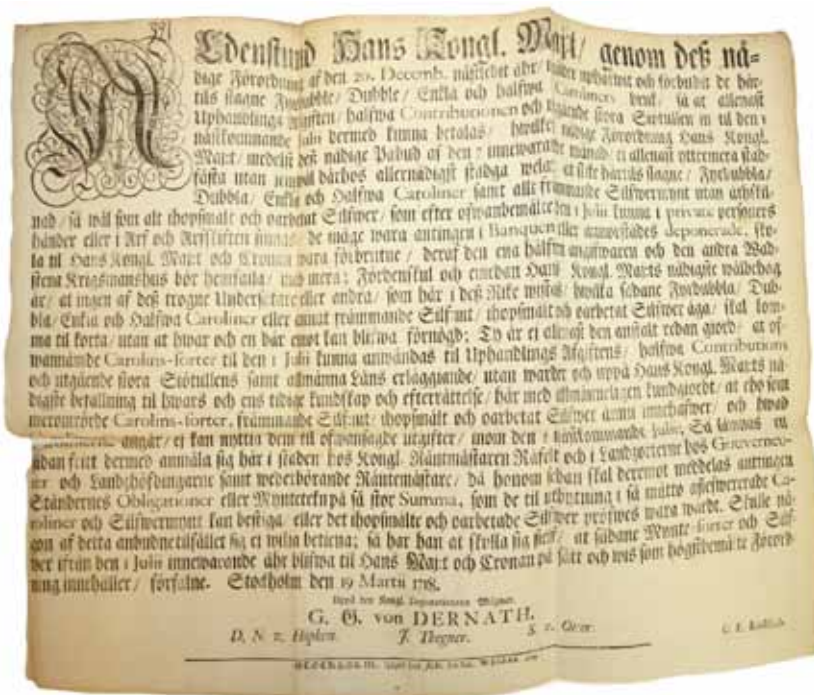 NEdenstund Hans Kongl. Maj:t/ genom deß nå=
dige Förordning af den 20. Decemb. näst
tils slagne Fyrdubble/ Dubble/ Enkla och halfwa Caroliners bruk/ så at allenast
Uphandlings halfwa Contributionen och store Siötullen in til den 1
nästkommande Julii dermed kunna betalas/ nådige Förordning Hans Kongl.
Maj:t/ medelst deß nådige Påbud af den 7 innewarande månad/ ei allenast ytterмera stad-
fästa utan jemwäl därhos allernådigst stadga welat/ slagne/ Fyrdubbla/
Dubbla/ Enkla och Halfwa Caroliner samt alt främmande Silfwermynt utan åtskil-
nad/ så wäl som alt ihopsmält och oarbetat Silfwer/ som efter ofwanbemälte den 1 Julii kunna i private personers
händer eller i Arf och Arfskiften finnas/ de måge wara antingen i Banquen eller annorstädes deponerade, sko-
la til Hans Kongl. Maj:t och Cronan wara förbrutne/ deraf den ena hälften angifwaren och den andra Wad-
stena Krigsmanshus bör hemfalla/ med mera; Fördenskul och emedan Hans Kongl. Maj:ts nådigste wälbehag
är/ at ingen af deß trogne Undersåtare eller andra/ som här i deß Rike wistas/ hwilka sådane Fyrdubbla/ Dub-
bla/ Enkla och Halfwa Caroliner eller annat främmande Silf:mt/ ihopsmält och oarbetat Silfwer äga/ skal kom-
ma til korta/ utan at hwar och en här emot kan blifwa förnögd; Ty är ej allenast den anstalt redan giord/ at of-
wannämde Carolins-sorter til den 1 Julii kunna anwändas til Uphandlings Afgiftens/ halfwa Contributions
och utgående stora Siötullens samt allmänna Låns erläggiande/ utan warder och uppå Hans Kongl. Maj:ts nå-
digste befallning til hwars och ens tidige kundskap och efterrättelse/ här med allmänneligen kundgiordt/ at eho som
meromrörde Carolins-sorter, främmande Silf:mt/ ihopsmält och oarbetat Silfwer ännu innehafwer/ och hwad
Carolinerne angår/ ej kan nyttia dem til ofwansagde utgifter/ inom den 1 nästkommande Julii, Så lämnas en
sådan fritt dermed anmäla sig här i staden hos Kongl. Räntmästaren Räfelt och i Landzorterne hos Gouverneu-
rer och Landzhöfdingarne samt wederbörande Räntemästare/ då honom sedan skal deremot meddelas antingen
Ständernes Obligationer eller Myntetekn på så stor Summa, som de til utbytning i så måtto Ca-
roliner och Silfwermynt kan bestiga/ eller det ihopsmälte och oarbetade Silfwer pröfwes wara wärdt. Skulle nå-
gon af detta anbudne tilfället sig ei wilja betiena; så har han at skylla sig sielf/ at sådane Mynte-sorter och Silf-
wer ifrån den 1 Julii innewarande åhr blifwa til Hans Maj:t och Cronan på sätt och wis som högstbemälte Förord-
ning innehåller/ förfalne. Stockholm den 19 Martii 1718.
G. G. von DERNATH.
D. N. v. Höpken. J. Thegner.